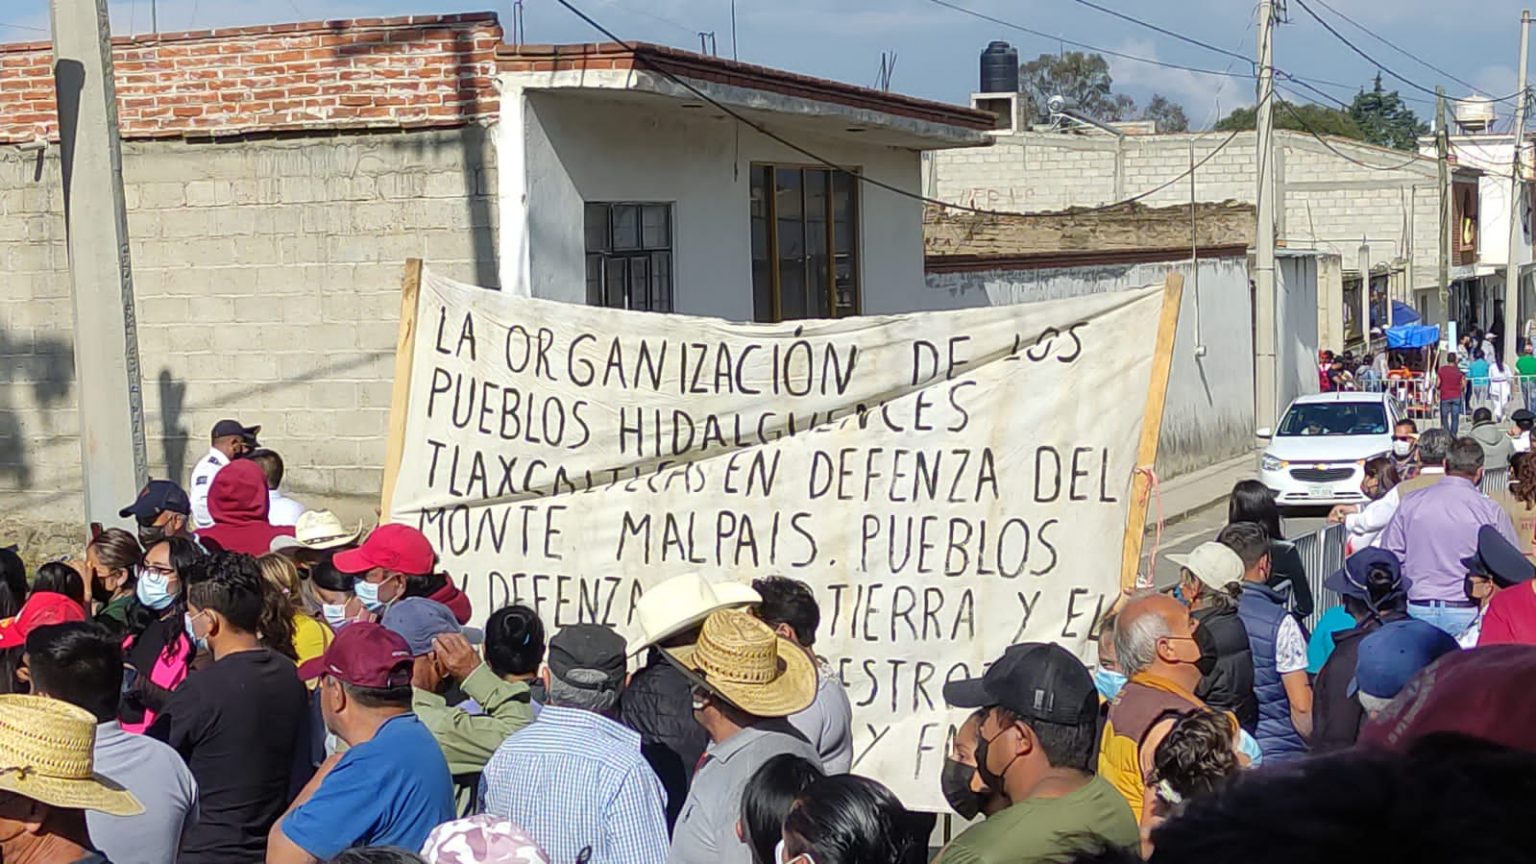 LA ORGANIZACIÓN DE LOS
PUEBLOS HIDALGUENCES
TLAXCALTECAS EN DEFENZA DEL
MONTE. MALPAIS. PUEBLOS
DEFENZA TIERRA Y EL
Y